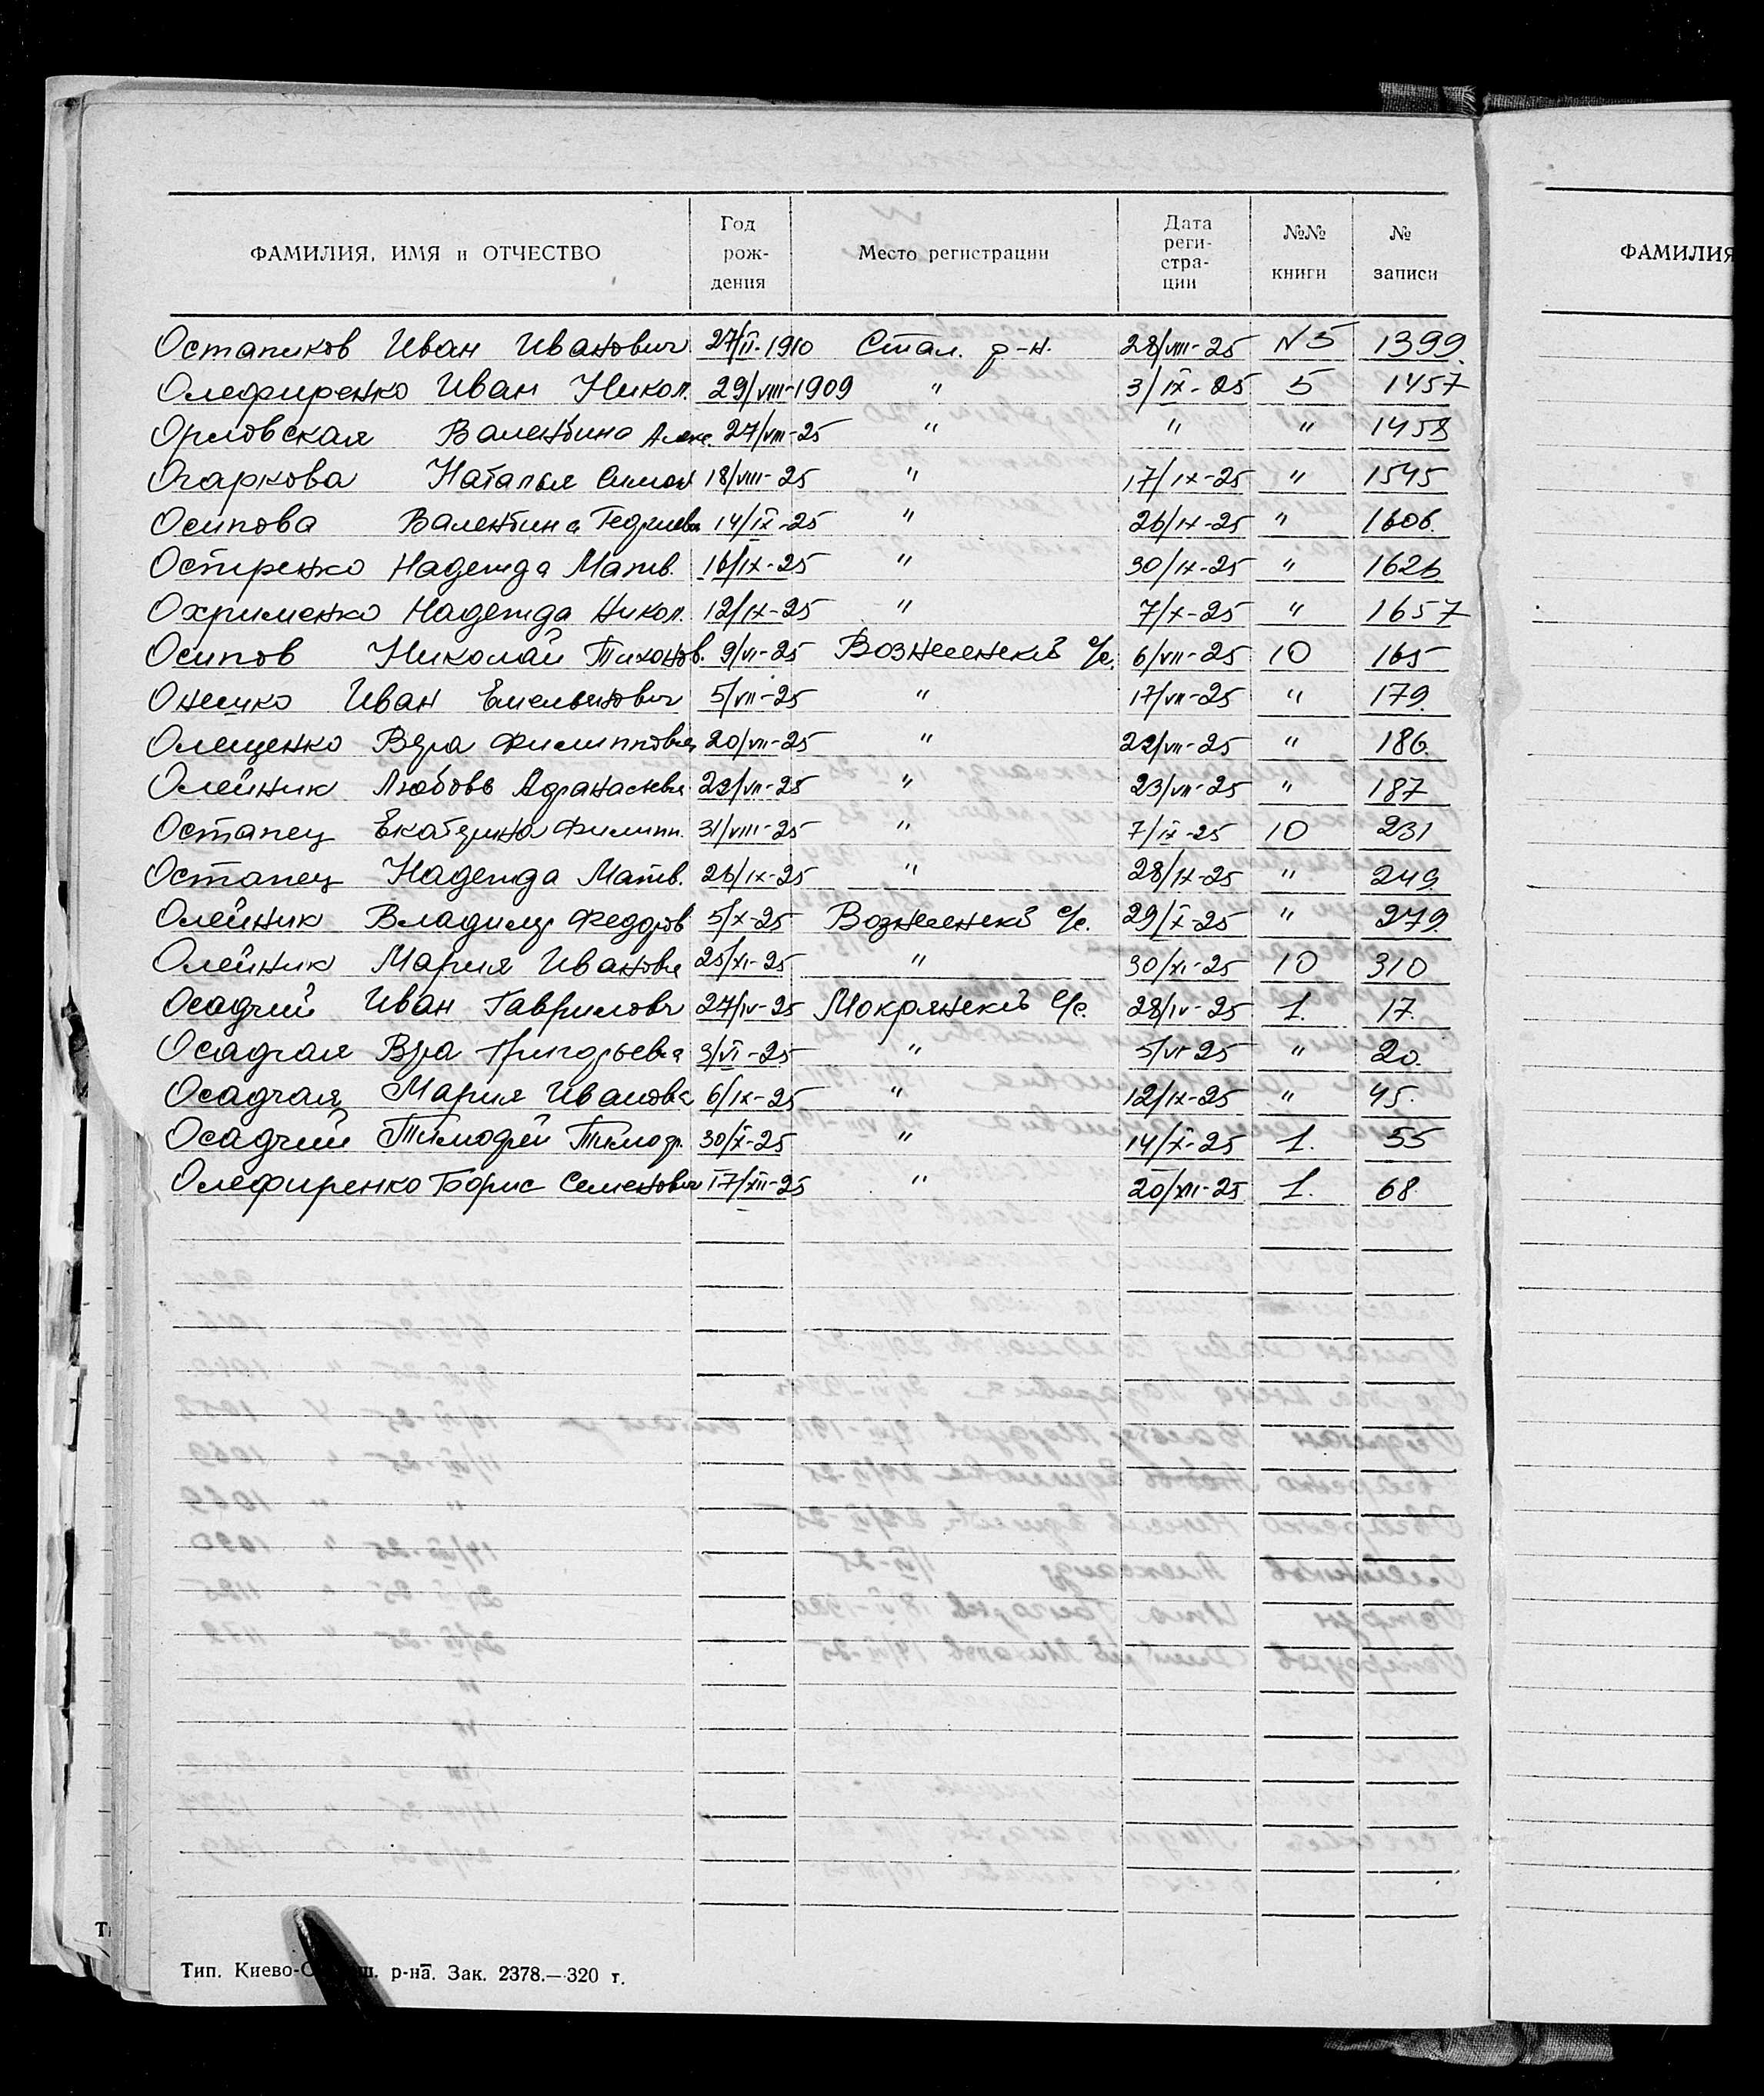 ФАМИЛИЯ, ИМЯ и ОТЧЕСТВО Год рождения Место регистрации Дата регистрации №№ книги № записи
Остапиков Иван Иванович 27/II-1910 Стал. р-н. 28/VIII-25 N5 1399.
Олефиренко Иван Никол. 29/VIII-1909 " 3/IX-25 5 1457
Орловская Валентина Алекс. 27/VIII-25 " " " 1458
Огаркова Наталья Симон 18/VIII-25 " 17/IX-25 " 1545
Осипова Валентина 14/IX-25 " 26/IX-25 " 1606.
Остренко Надежда Матв. 16/IX-25 " 30/IX-25 " 1626
Охрименко Надежда Никол. 12/IX-25 " 7/X-25 " 1657
Осипов Николай Тихонов. 9/VI-25 Вознесенский с/с. 6/VII-25 10 165
Онешко Иван Емельянович 5/VII-25 " 17/VII-25 " 179.
Олещенко Вера Филипповна 20/VII-25 " 22/VII-25 " 186.
Олейник Любовь Афанасьевна 22/VII-25 " 23/VII-25 " 187
Остапец Екатерина Филипп. 31/VIII-25 " 7/IX-25 10 231
Остапец Надежда Матв. 26/IX-25 " 28/IX-25 " 249.
Олейник Владимир Федоров 5/X-25 Вознесенский с/с. 29/X-25 " 279.
Олейник Мария Ивановна 25/XI-25 " 30/XI-25 10 310
Осадчий Иван Гаврилович 27/IV-25 Мокрянский с/с. 28/IV-25 1. 17.
Осадчая Вера Григорьевна 3/VI-25 " 5/VI-25 " 20.
Осадчая Мария Ивановна 6/IX-25 " 12/IX-25 " 45.
Осадчий Тимофей Тимоф. 30/X-25 " 14/X-25 1. 55
Олефиренко Борис Семенович 17/XII-25 " 20/XII-25 1. 68.
Тип. Киево- р-на. Зак. 2378.—320 т.
ФАМИЛИЯ